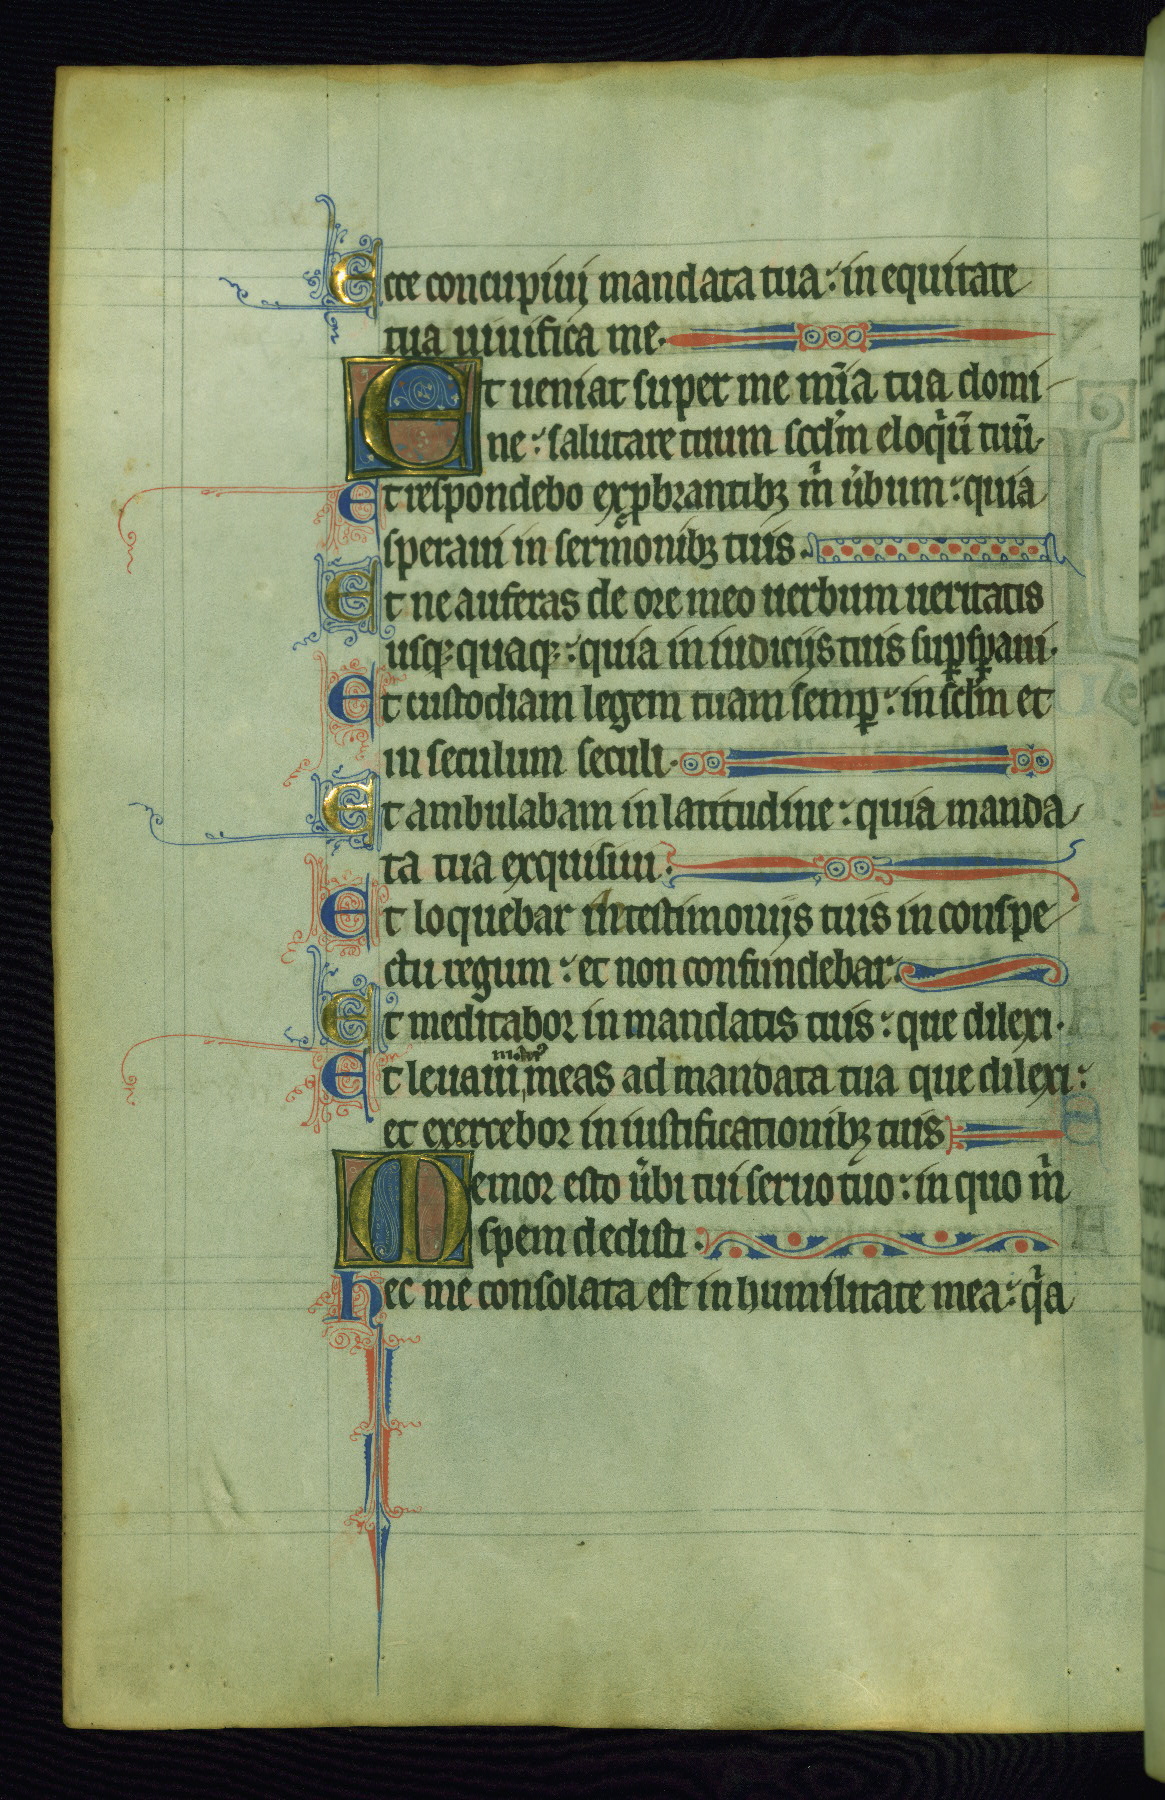 Ecce concupiuij mandata tua: in equitate
tua uiuifica me.
Et ueniat super me mīa tua domi
ne: salutare tuum scd̄m eloqͥū tuū.
Et respondebo exꝓbrantibꝫ mͥ ūbum: quia
speraui in sermonibꝫ tuis.
Et ne auferas de ore meo uerbum ueritatis
usqꝫ quaqꝫ: quia in iudicijs tuis suꝑsꝑaui.
Et custodiam legem tuam semꝑ: in scl̄m et
in seculum seculi.
Et ambulabam in latitudine: quia manda
ta tua exquisiui:
Et loquebar in testimonijs tuis in conspe
ctu regum: et non confundebar.
Et meditabor in mandatis tuis: que dilexi.
Et leuaui meas ad mandata tua que dilexi:
et exercebor in iustificationibꝫ tuis
Memor esto ūbi tui seruo tuo: in quo mͥ
spem dedisti.
Hec me consolata est in humilitate mea: qͥa